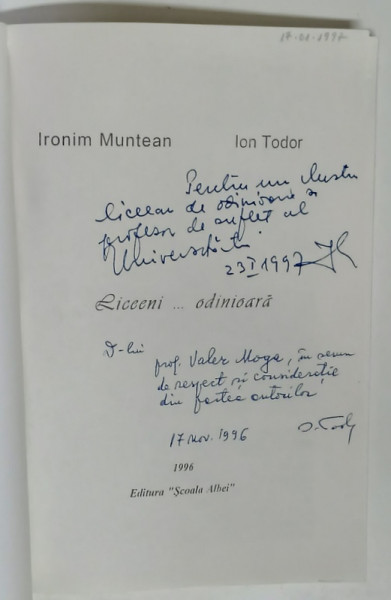 17-01-1997
Ironim Muntean Ion Todor
Pentru un ilustru
liceean de odinioară și
profesor de suflet al
Universității.
23 I 1997
Liceeni ... odinioară
D-lui
prof. Valer Moga, în semn
de respect și considerație
din partea autorilor
17 Nov. 1996
1996
Editura "Școala Albei"